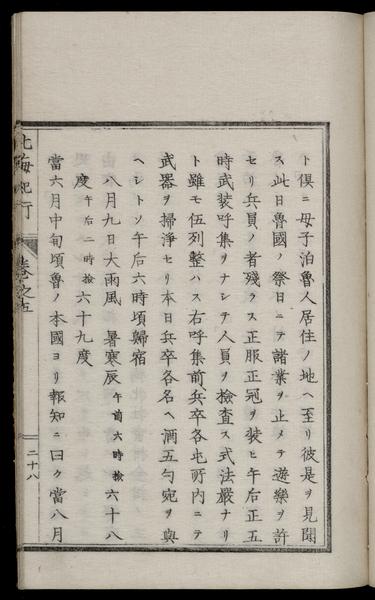 ト倶ニ母子泊魯人居住ノ地ヘ至リ彼是ヲ見聞
ス此日魯國ノ祭日ニテ諸業ヲ止メテ遊樂ヲ許
セリ兵員ノ者殘ラス正服正冠ヲ裝ヒ午后正五
時武裝呼集ヲナシテ人員ヲ檢査ス式法嚴ナリ
ト雖モ伍列整ハス右呼集前兵卒各屯所内ニテ
武器ヲ掃淨セリ本日兵卒各名ヘ酒五勺宛ヲ與
ヘシトソ午后六時頃歸宿
八月九日大雨風 暑寒辰午前六時檢六十八
度午后二時檢六十九度
當六月中旬頃魯ノ本國ヨリ報知ニ曰ク當八月
北海紀行 卷之五 二十八